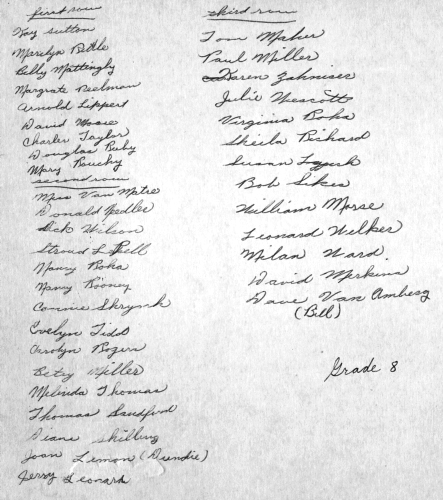 first row
Kay Sutton
Marilyn
Billy Mattingly
Margrate
Arnold Lippert
David
Charles Taylor
Douglas Ruby
Mary
second row
Miss Van Metre
Donald Pedler
Dick Wilson
Stroud L Bell
Nancy Boha
Nancy Rooney
Connie
Evelyn Tidd
Carolyn Rogers
Betsy Miller
Melinda Thomas
Thomas Sandford
Diane Shilling
Joan Lemon (Dundie)
Jerry Leonard
third row
Tom Maher
Paul Miller
Karen
Julie Wescott
Virginia Boha
Sheila Richard
Susan
Bob Sikes
William Morse
Leonard Welker
Milan Ward
David
Dave Van Amberg
(Bill)
Grade 8